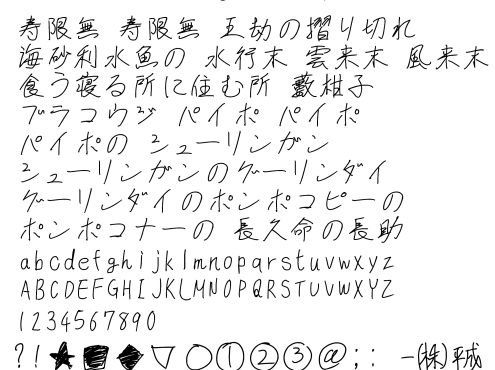 寿限無 寿限無 五劫の摺り切れ
海砂利水魚の 水行末 雲来末 風来末
食う寝る所に住む所 藪柑子
ブラコウジ パイポ パイポ
パイポの シューリンガン
シューリンガンのグーリンダイ
グーリンダイのポンポコピーの
ポンポコナーの 長久命の長助
abcdefghijklmnopqrstuvwxyz
ABCDEFGHIJKLMNOPQRSTUVWXYZ
1234567890
?!★■◆▽○①②③@;: ー㈱平成